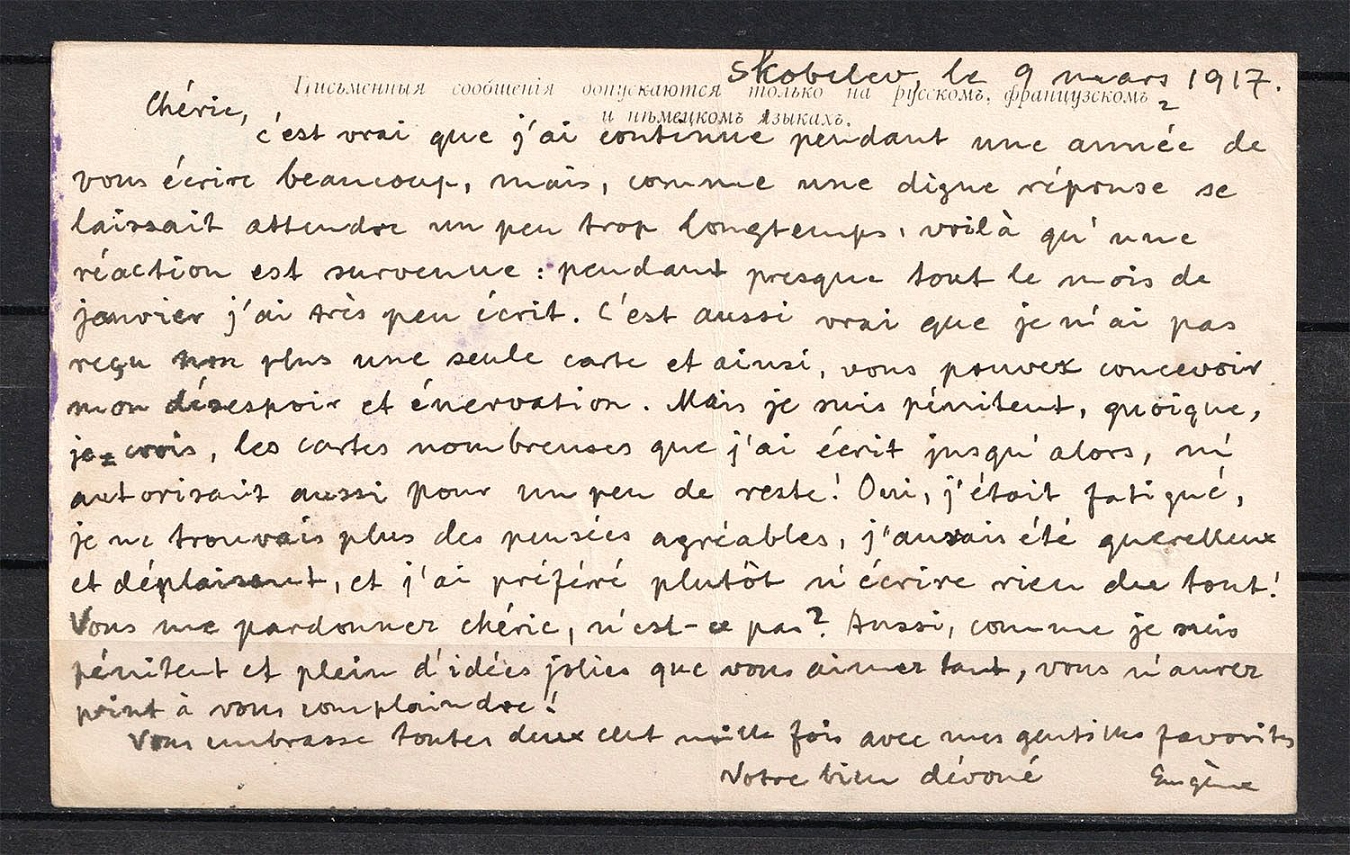 Skobelev, le 9 mars 1917.
Письменныя сообщенія допускаются только на русскомъ, французскомъ
и нѣмецкомъ языкахъ.
2
Chérie,
c'est vrai que j'ai continue pendant une année de
vous écrire beaucoup, mais, comme une digne réponse se
laissait attendre un peu trop longtemps, voilà qu'une
réaction est survenue : pendant presque tout le mois de
janvier j'ai très peu écrit. C'est aussi vrai que je n'ai pas
reçu non plus une seule carte et ainsi, vous pouvez concevoir
mon désespoir et énervation. Mais je suis pénitent, quoique,
je crois, les cartes nombreuses que j'ai écrit jusqu'alors, m'
autorisait aussi pour un peu de reste! Oui, j'était fatigué,
je ne trouvais plus des pensées agréables, j'aurais été querelleux
et déplaisant, et j'ai préféré plutôt n'écrire rien du tout!
Vous me pardonnez chérie, n'est-ce pas? Aussi, comme je suis
pénitent et plein d'idées jolies que vous aimez tant, vous n'aurez
point à vous complaindre!
Vous embrasse toutes deux cent mille fois avec mes gentilles favorites
Votre bien dévoué Eugène